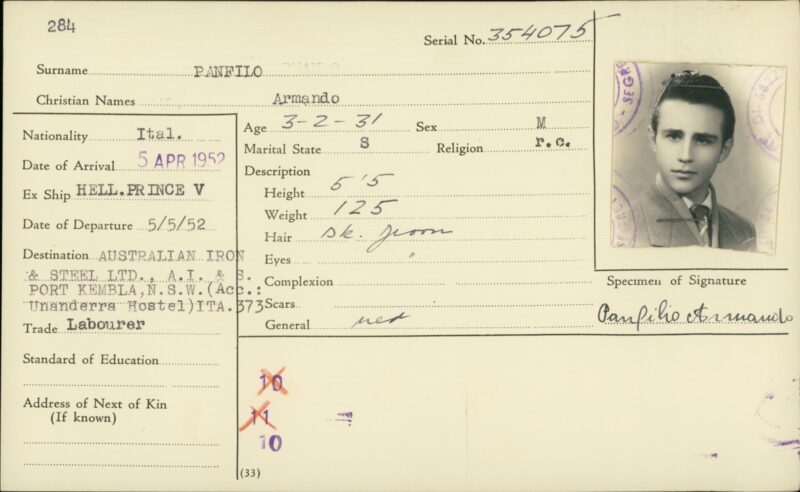 284
Serial No. 354075
Surname PANFILO
Christian Names Armando
Nationality Ital.
Date of Arrival 5 APR 1952
Ex Ship HELL.PRINCE V
Date of Departure 5/5/52
Destination AUSTRALIAN IRON
& STEEL LTD., A.I. & S.
PORT KEMBLA,N.S.W.(Acc.:
Unanderra Hostel)ITA.373
Trade Labourer
Standard of Education
Address of Next of Kin
(If known)
Age 3-2-31 Sex M
Marital State S Religion r.c.
Description
Height 5'5
Weight 125
Hair Dk.
Eyes
Complexion
Scars
General med
10
11
10
(33)
SEGRE
Specimen of Signature
Panfilio Armando